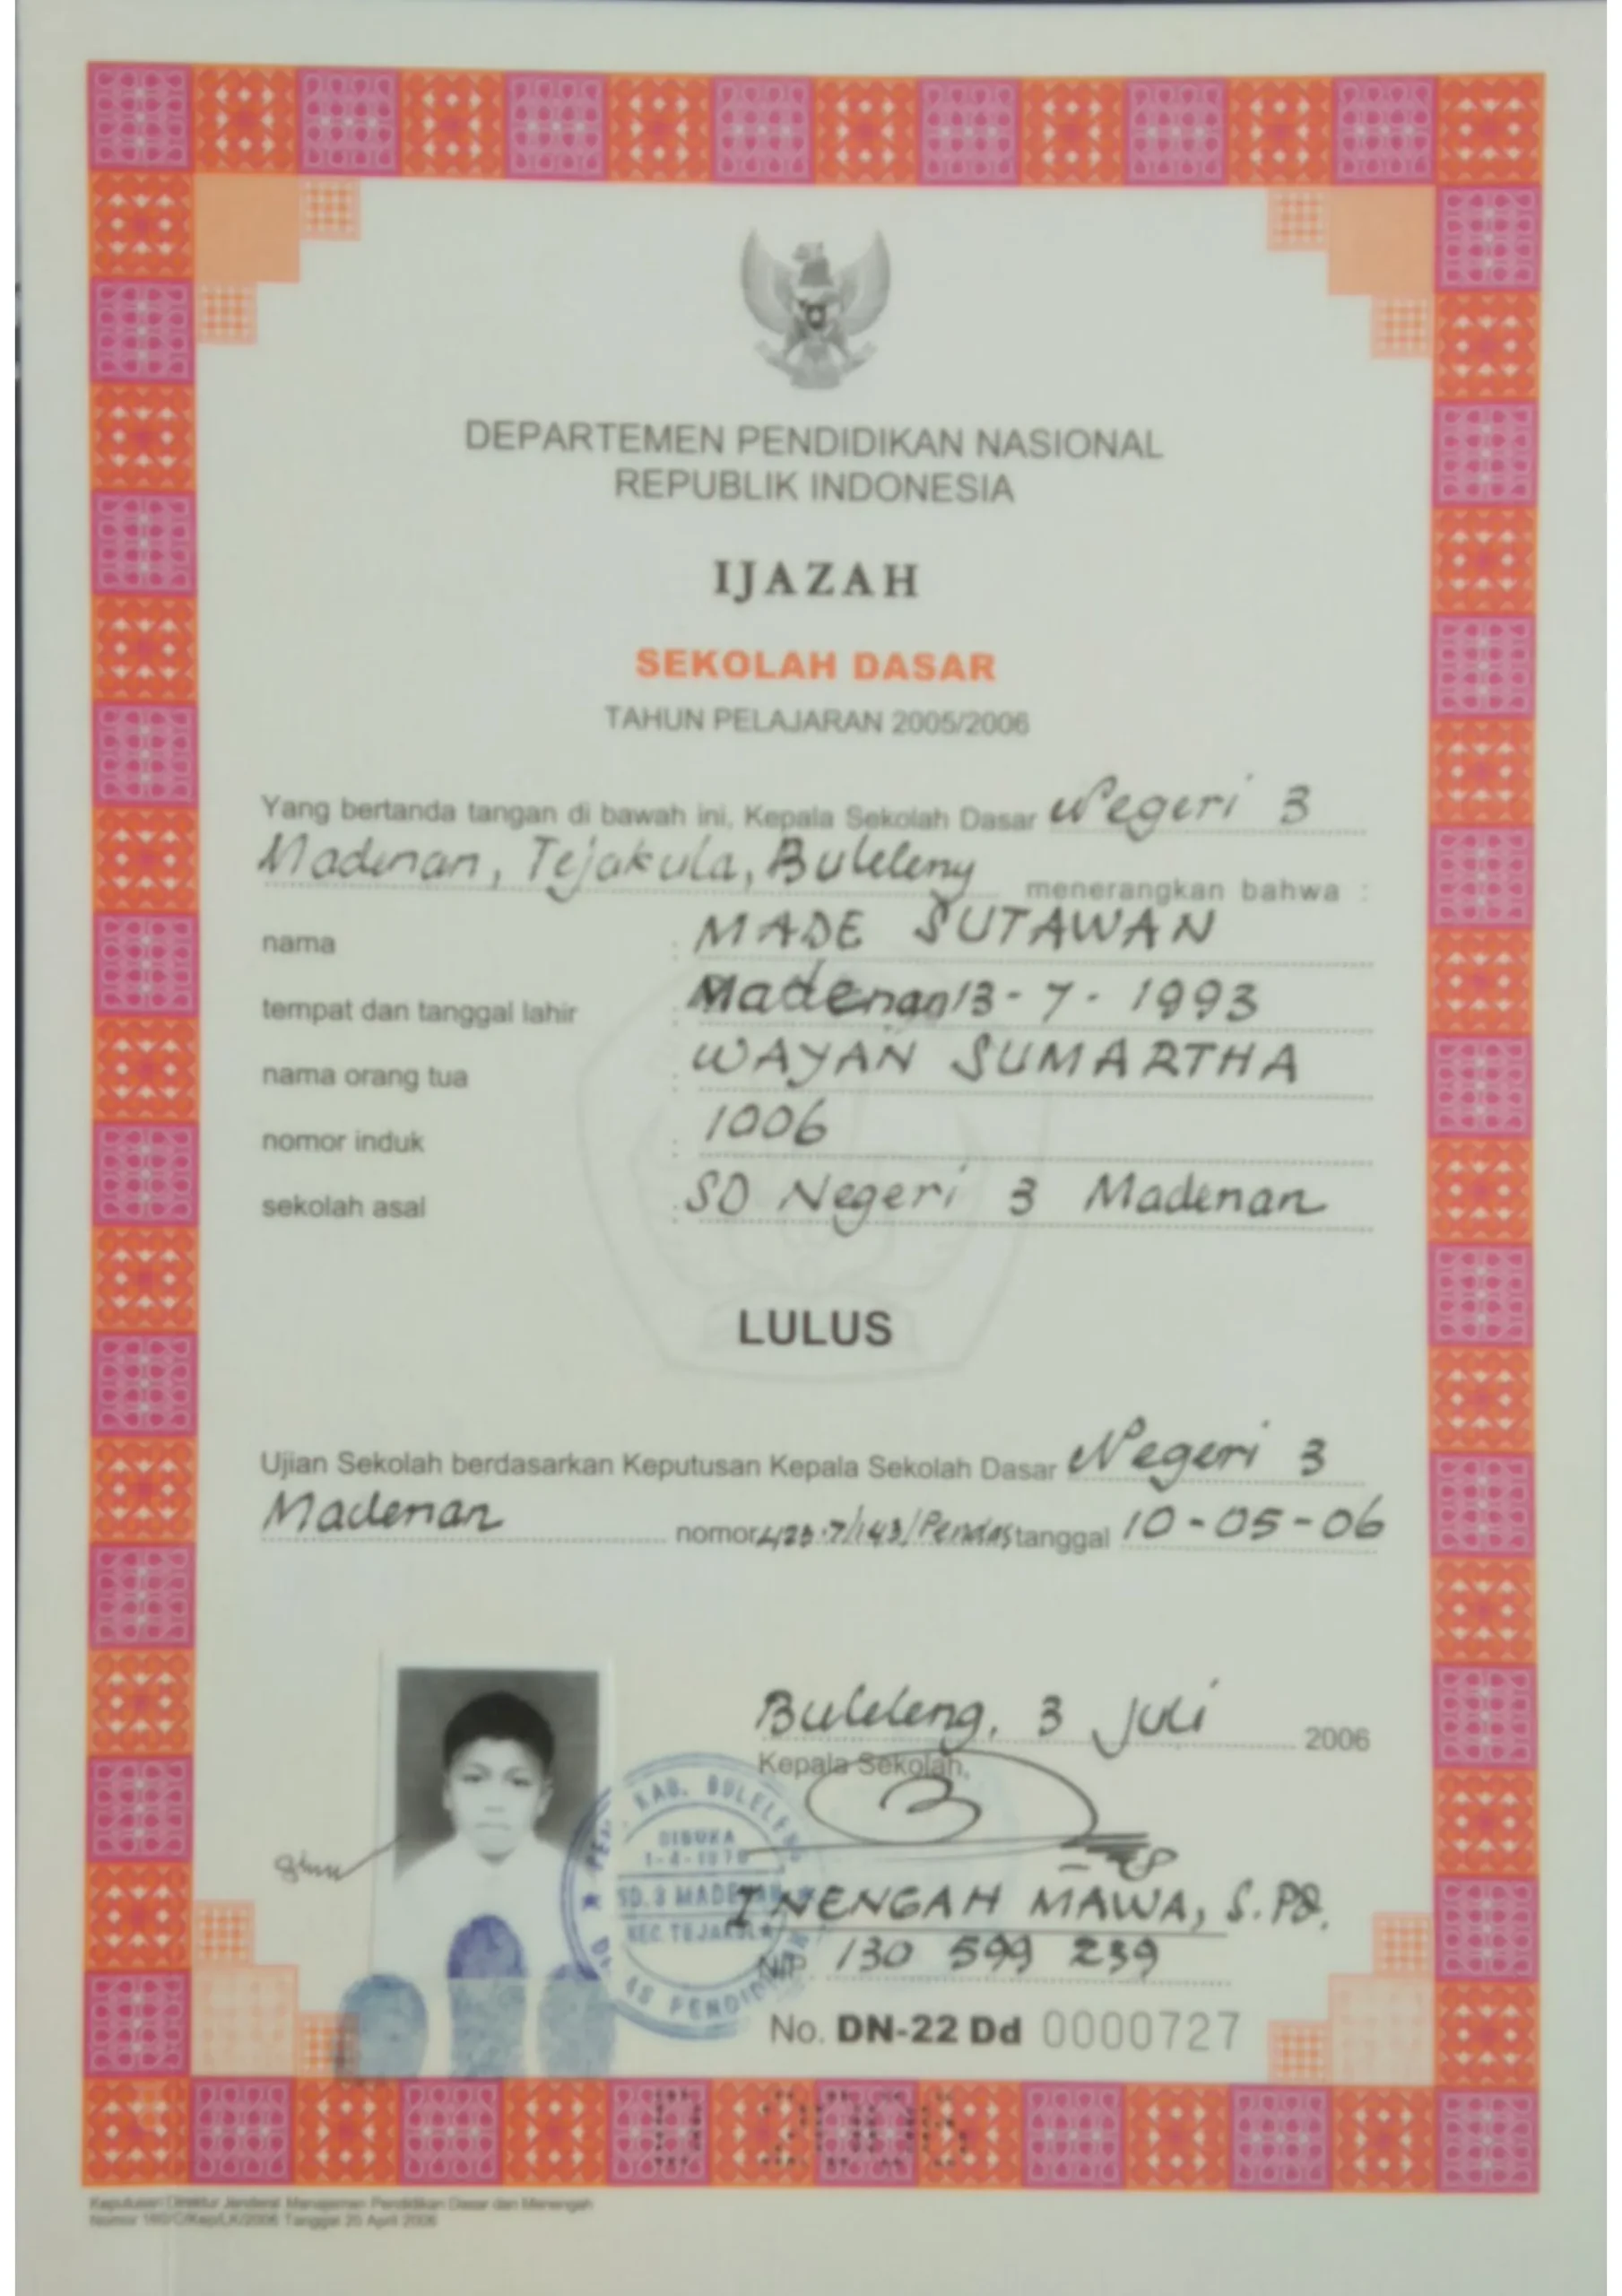 DEPARTEMEN PENDIDIKAN NASIONAL
REPUBLIK INDONESIA
IJAZAH
SEKOLAH DASAR
TAHUN PELAJARAN 2005/2006
Yang bertanda tangan di bawah ini, Kepala Sekolah Dasar Negeri 3
Madenan, Tejakula, Buleleng menerangkan bahwa :
nama : MADE SUTAWAN
tempat dan tanggal lahir : Madenan 13 - 7 - 1993
nama orang tua : WAYAN SUMARTHA
nomor induk : 1006
sekolah asal : SD Negeri 3 Madenan
LULUS
Ujian Sekolah berdasarkan Keputusan Kepala Sekolah Dasar Negeri 3
Madenan nomor 423.7/143/Pendas tanggal 10-05-06
Buleleng, 3 Juli 2006
Kepala Sekolah,
KAB. BULELENG
DIBUKA
SD. 3 MADENAN
KEC. TEJAKULA
PENDIDIKAN
I NENGAH MAWA, S.Pd.
NIP. 130 599 239
No. DN-22 Dd 0000727
Keputusan Direktur Jenderal Manajemen Pendidikan Dasar dan Menengah
Tanggal 25 April 2006